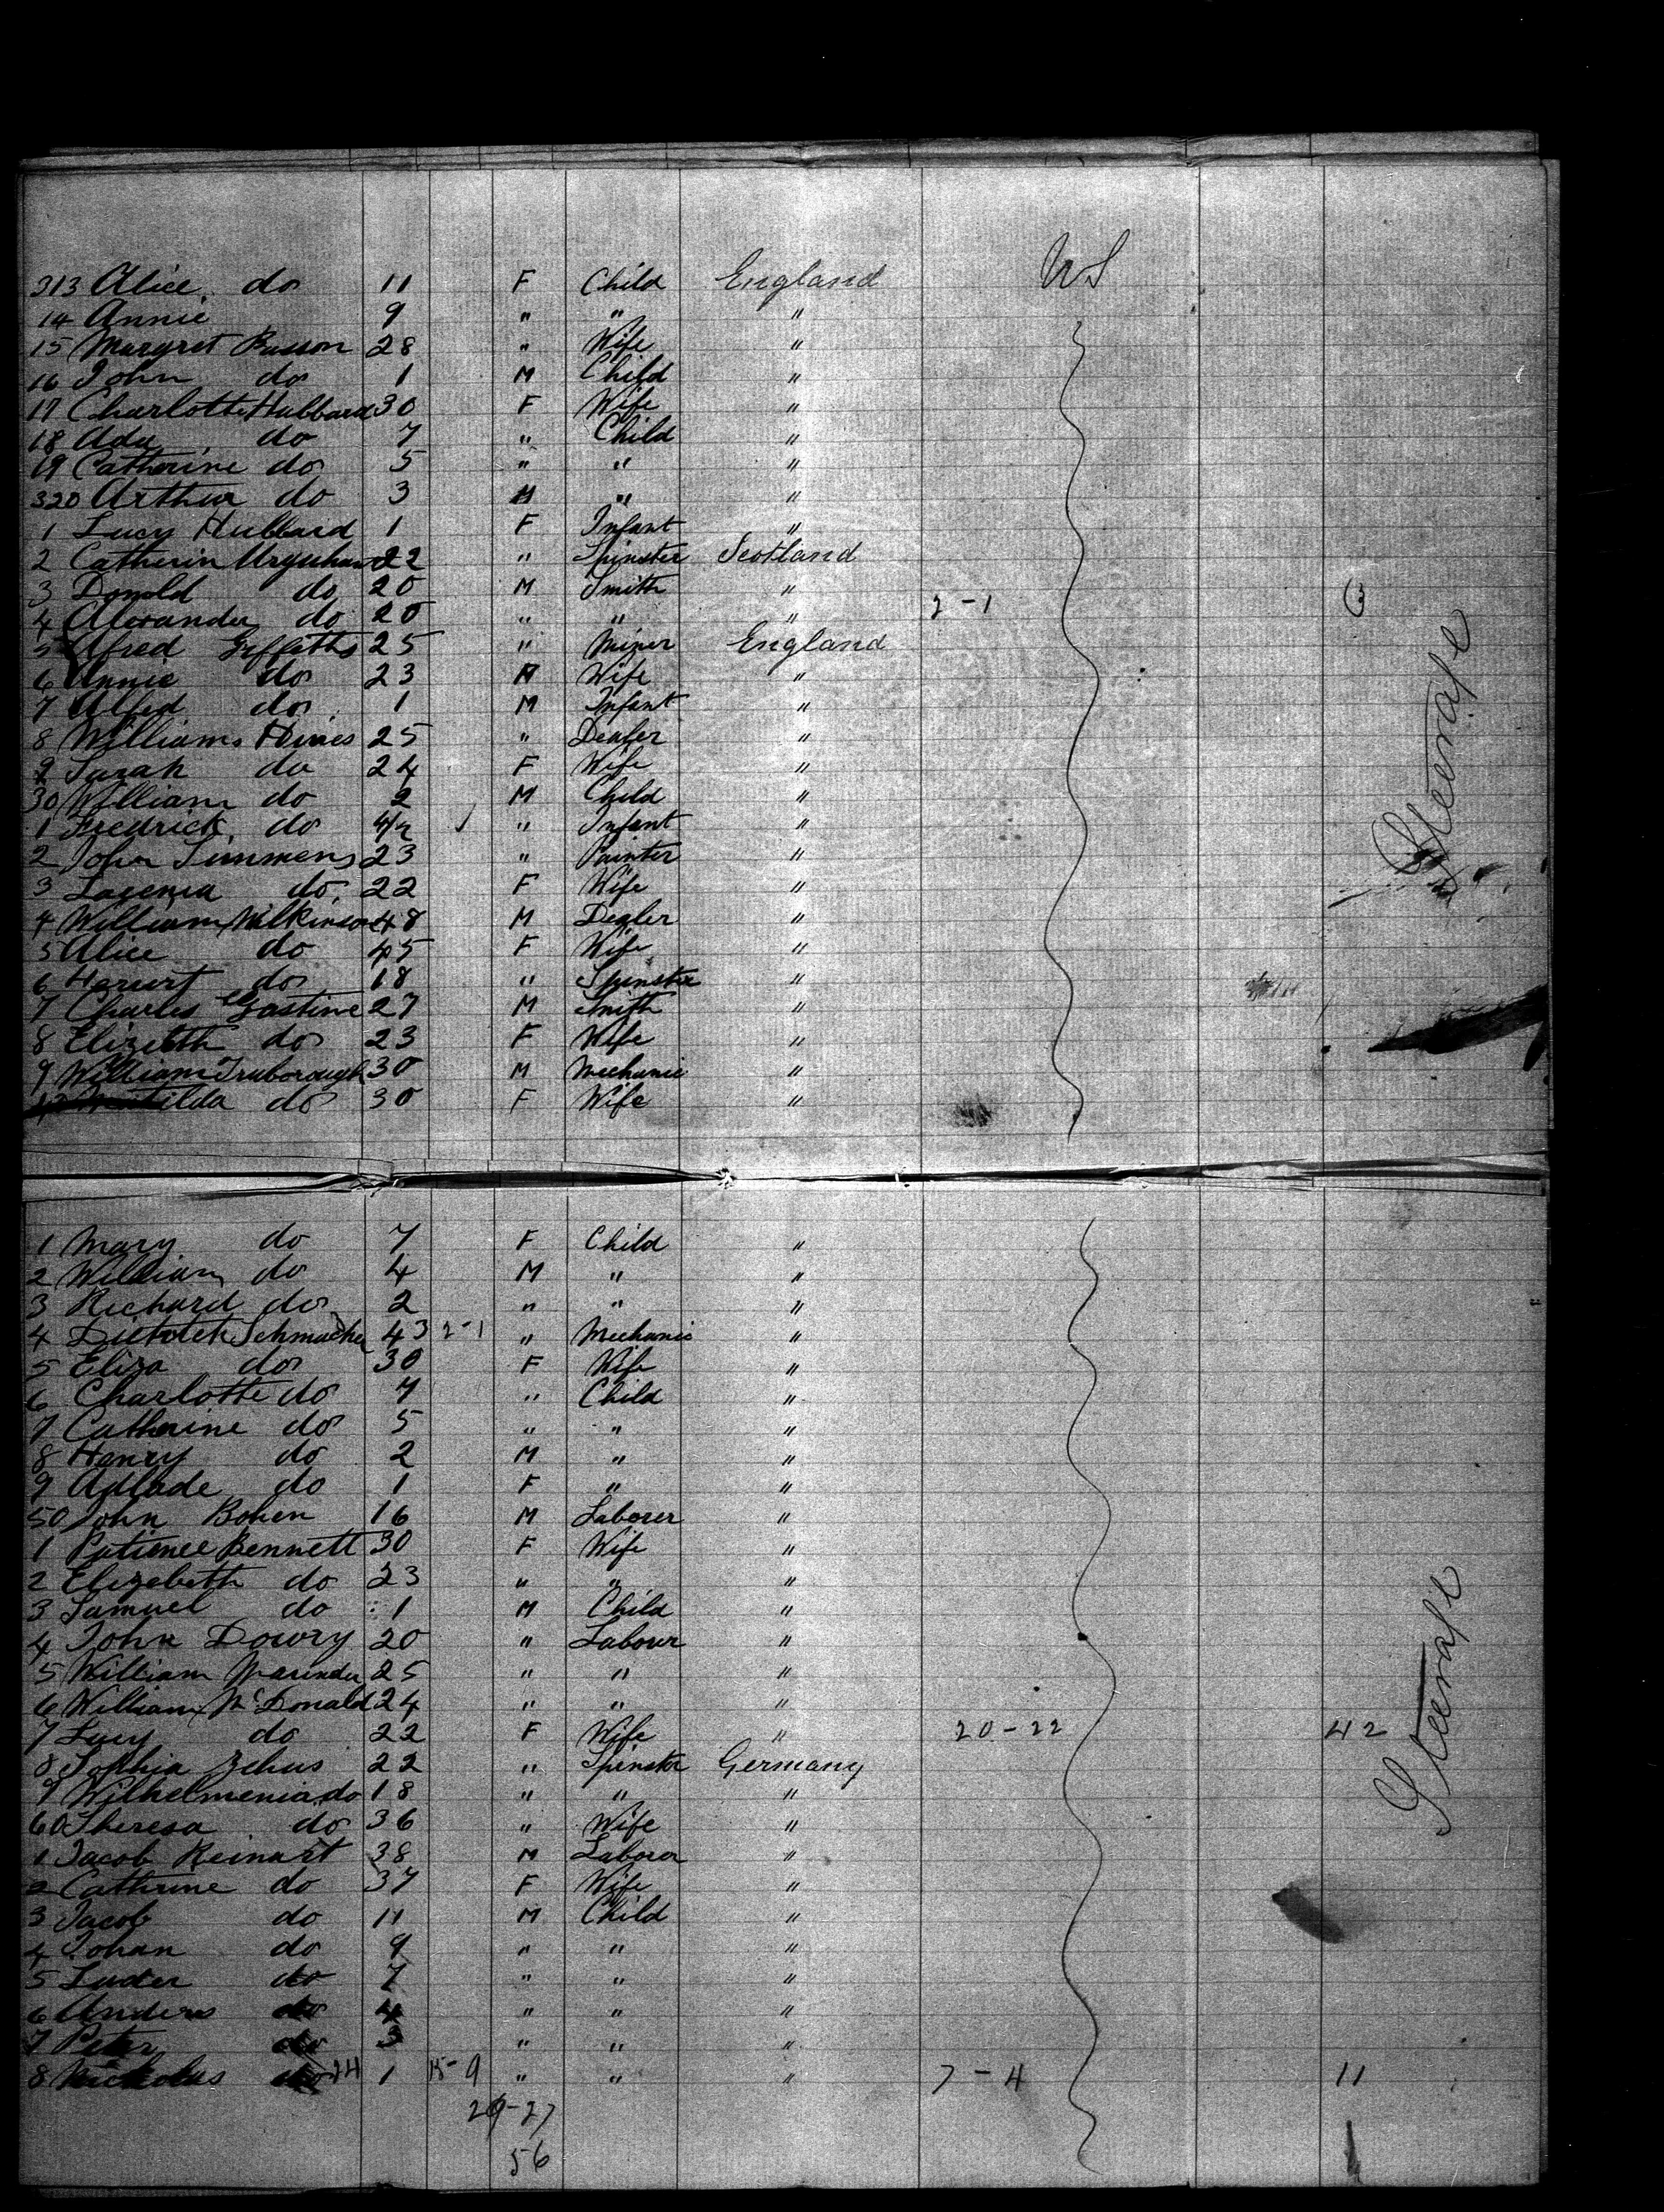 313 Alice do 11 F Child England US
14 Annie 9 " " "
15 Margret Basson 28 " Wife "
16 John do 1 M Child "
17 Charlotte Hubbard 30 F Wife "
18 Ada do 7 " Child "
19 Catherine do 5 " " "
320 Arthur do 3 M " "
1 Lucy Hubbard 1 F Infant "
2 Catherin Urquhart 22 " Spinster Scotland
3 Donald do 20 M Smith "
4 Alexander do 20 " " " 2-1 3
5 Alfred Griffeths 25 " Miner England
6 Annie do 23 F Wife "
7 Alfed do 1 M Infant "
8 William Hines 25 " Dealer "
9 Sarah do 24 F Wife "
30 William do 2 M Child "
1 Fredrick do " Infant "
2 John Simmens 23 " Painter "
3 do 22 F Wife "
4 William Wilkinson 48 M Dealer "
5 Alice do 45 F Wife "
6 do 18 " Spinster "
7 Charles Gastine 27 M Smith "
8 Elizebth do 23 F Wife "
9 William Truborough 30 M Mechanic "
Matilda do 30 F Wife "
Steerage
1 Mary do 7 F Child "
2 William do 4 M " "
3 Richard do 2 " " "
4 Dietrich Schmacher 43 2-1 " Mechanic "
5 Eliza do 30 F Wife "
6 Charlotte do 7 " Child "
7 Catherine do 5 " " "
8 Henry do 2 M " "
9 Adlade do 1 F " "
50 John Bohen 16 M Laborer "
1 Patience Bennett 30 F Wife "
2 Elizebeth do 23 " " "
3 Samuel do 1 M Child "
4 John Dowry 20 " Labour "
5 William 25 " " "
6 William McDonald 24 " " "
7 Lucy do 22 F Wife " 20-22 42
8 Sophia Zehus 22 " Spinster Germany
9 Wilhelmenia do 18 " " "
60 Theresa do 36 " Wife "
1 Jacob Reinart 38 M Laborer "
2 Cathrine do 37 F Wife "
3 Jacob do 11 M Child "
4 Johan do 9 " " "
5 Luder do 7 " " "
6 Anders do 4 " " "
7 Peter do 3 " " "
8 Nickolas do 24 1 15-9 " " " 7-4 11
29-27
56
Steerage